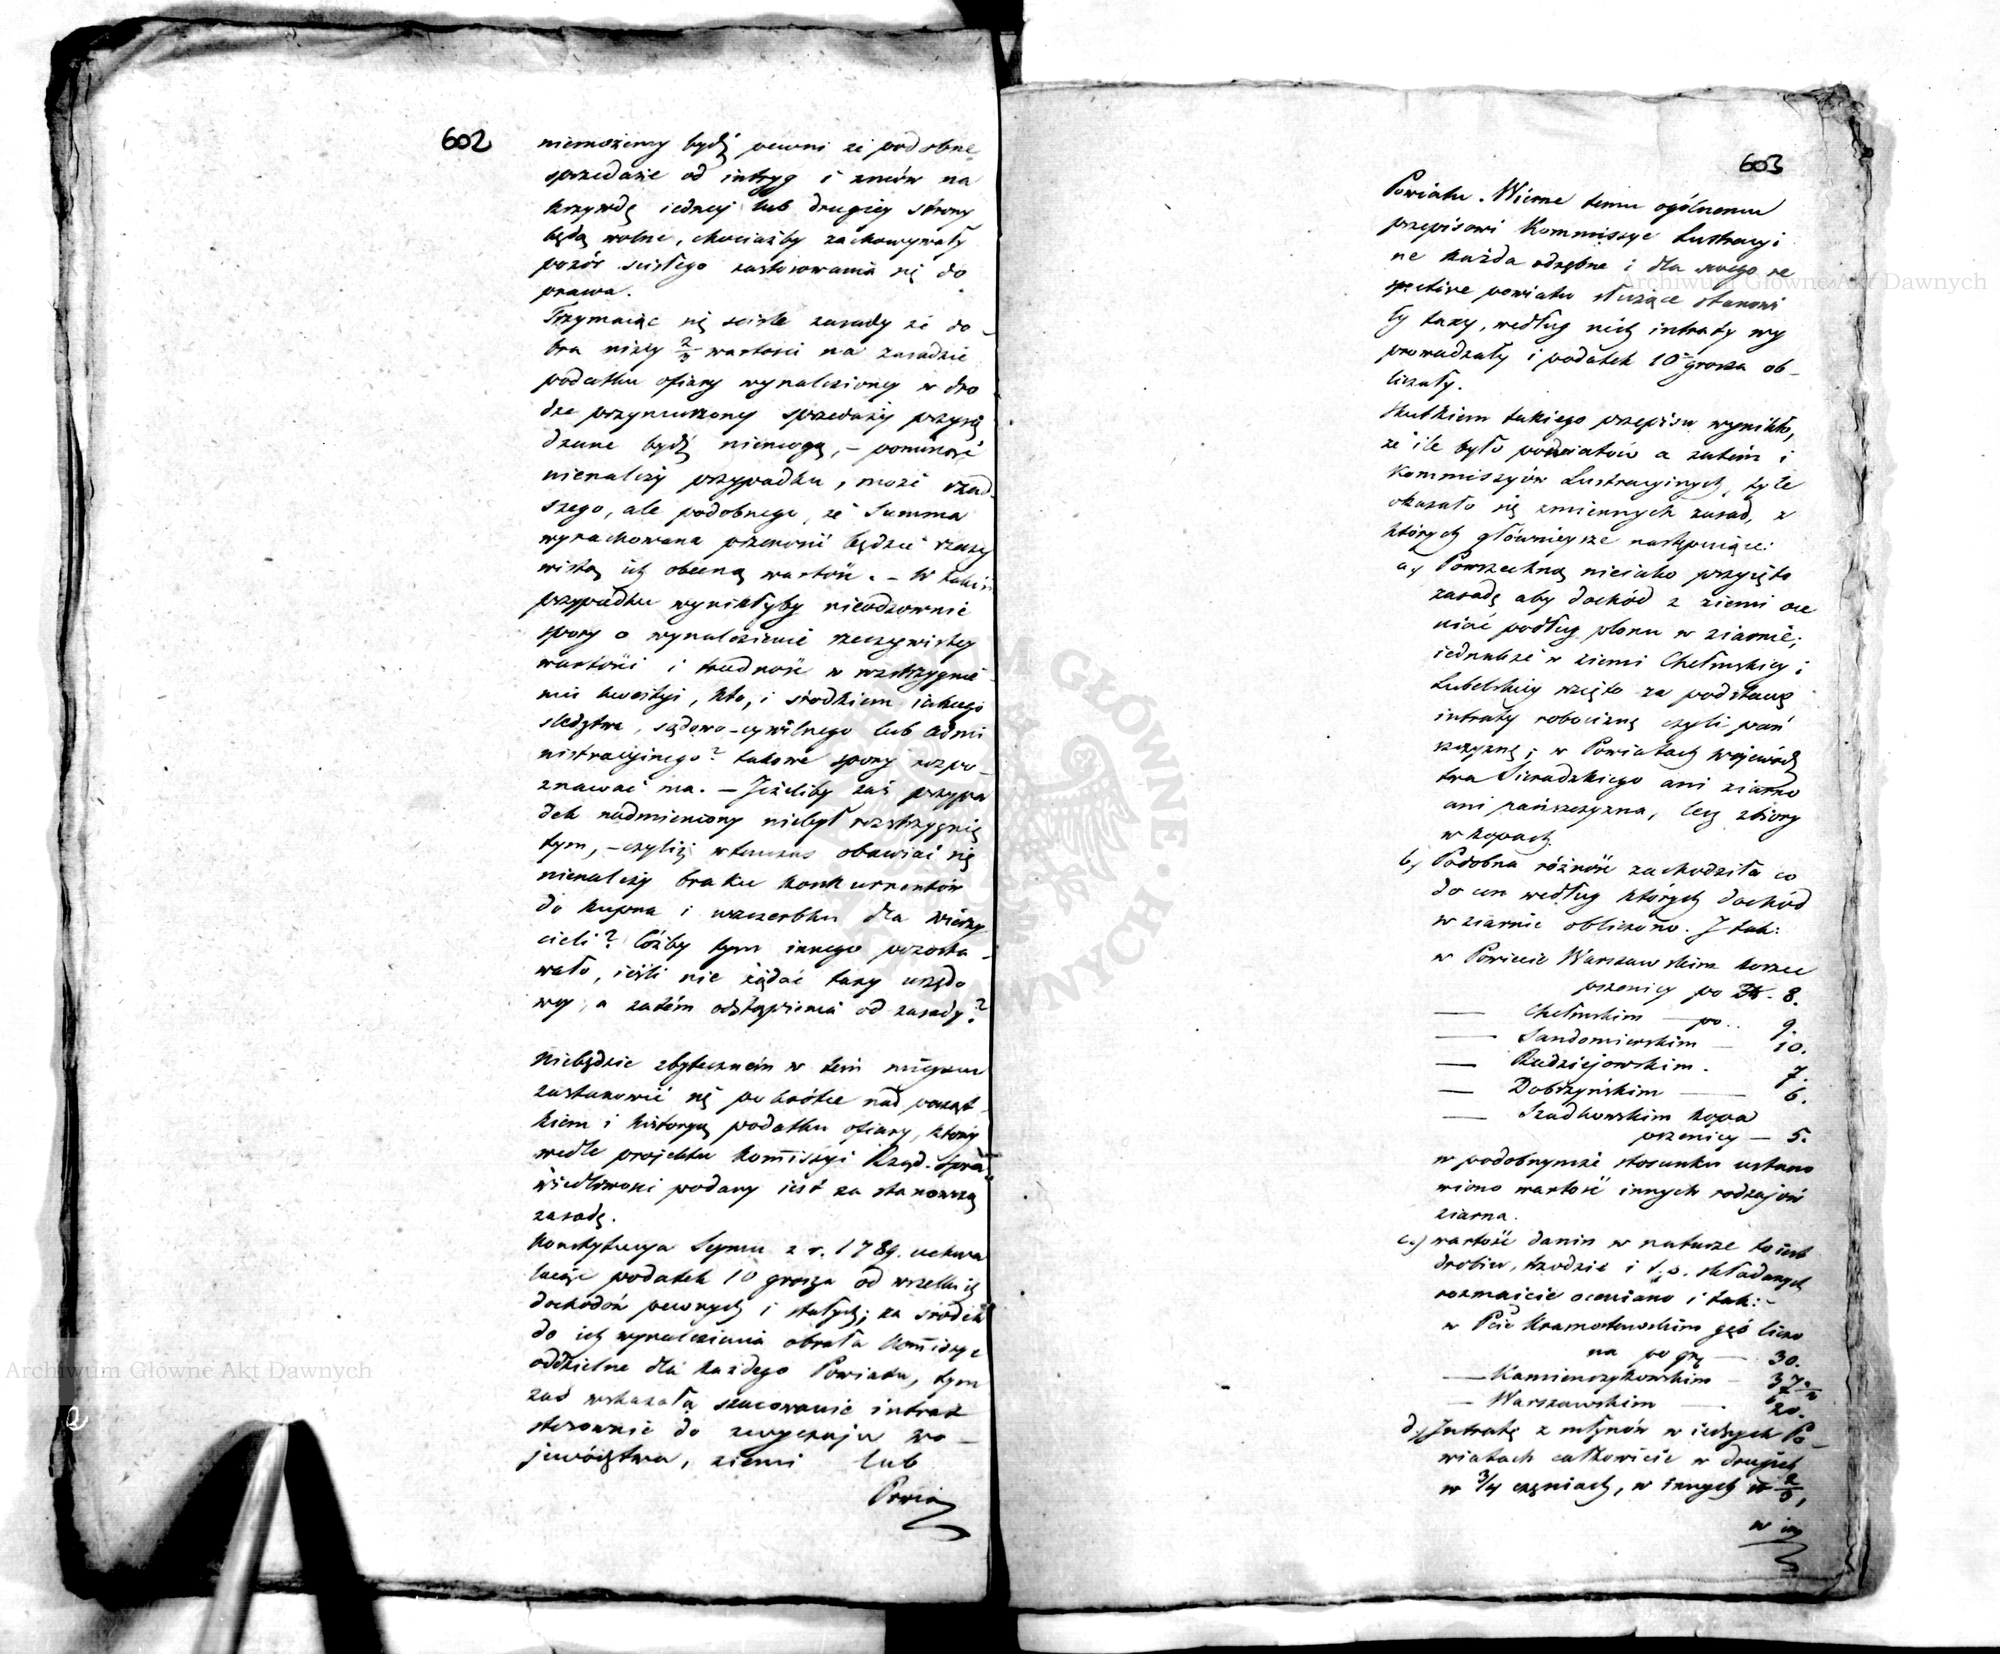 602
niemożemy bydź pewni że podobne
sprzedaże od intryg i zmów na
krzywdę iedney lub drugiey strony
będą wolne, chociażby zachowywały
pozór ścisłego zastosowania się do
prawa.
Trzymaiąc się ściśle zasady że do-
bra niżey 2/3 wartości na zasadzie
podatku ofiary wynalezioney w dro
dze przymuszoney sprzedaży przysą
dzane bydź niemogą, – pominąć
nienależy przypadku, może rzad-
szego, ale podobnego, że Summa
wyrachowana przenosić będzie rzeczy
wistą ich obecną wartość. – W takim
przypadku wynikłyby nieodzownie
spory o wynalezienie rzeczywistey
wartości i trudność w rozstrzygnie-
niu kwestyi, kto, i środkiem iakiego
śledztwa, sądowo-cywilnego lub admi
nistracyinego? takowe spory rozpo-
znawać ma. – Jeżeliby zaś przypa
dek nadmieniony niebył rozstrzygnię
tym, – czyliż wtenczas obawiać się
nienależy braku konkurrentów
do kupna i uszczerbku dla wierzy
cieli? Cóżby tym innego pozosta-
wało, ieśli nie żądać taxy urzędo
wey, a zatém odstąpienia od zasady?
Niebędzie zbyteczném w tém mieyscu
zastanowić się pokrótce nad począt-
kiem i historyą podatku ofiary, który
wedle projektu Kommissyi Rząd. Spra
wiedliwości podany iest za stanowczą
zasadę.
Konstytucya Seymu z r. 1789. uchwa
laiąc podatek 10 grosza od wszelkich
dochodów pewnych i stałych; za środek
do ich wynalezienia obrała Kommissye
oddzielne dla każdego Powiatu, tym
zaś wskazała szacowanie intrat
stosownie do zwyczaju wo-
jewództwa, ziemi lub
Powia
603
Powiatu. Wierne temu ogólnemu
przepisowi Kommissye Lustracyi
ne każda odrębne i dla swego re
spective powiatu służące stanowi
ły taxy, według nich intraty wy
prowadzały i podatek 10° grosza ob-
liczały.
Skutkiem takiego przepisu wynikło,
że ile było powiatów a zatém i
Kommissyów Lustracyinych, tyle
okazało się zmiennych zasad, z
których główniejsze następuiące:
a.) Powszechną nieiako przyięto
zasadę aby dochód z ziemi oce
niać podług plonu w ziarnie;
iednakże w ziemi Chełmskiey i
Lubelskiey wzięto za podstawę
intraty robociznę czyli pań
szczyznę; w Powiatach Wojewódz
twa Sieradzkiego ani ziarno
ani pańszczyzna, lecz zbiory
w kopach.
b.) Podobna różność zachodziła co
do cen według których dochód
w ziarnie obliczono. I tak:
w Powiecie Warszawskim korzec
pszenicy po Zł. 8.
— Chełmskim — po.. 9.
— Sandomierskim — 10.
— Radziejowskim. 7.
— Dobrzyńskim — 6.
— Szadkowskim kopa
pszenicy — 5.
w podobnymże stosunku ustano
wiono wartość innych rodzajów
ziarna.
c.) wartość danin w naturze to iest
drobiu, przędzie i t.p. składanych
rozmaicie oceniano i tak: –
w Pcie Kramostawskim gęś liczo
na po grz — 30.
— Kamienczykowskim – 37 1/2
— Warszawskim — 20.
d.) Intratę z młynów w iednych Po-
wiatach całkowicie w drugich
w 3/4 częściach, w innych w 2/3,
w in